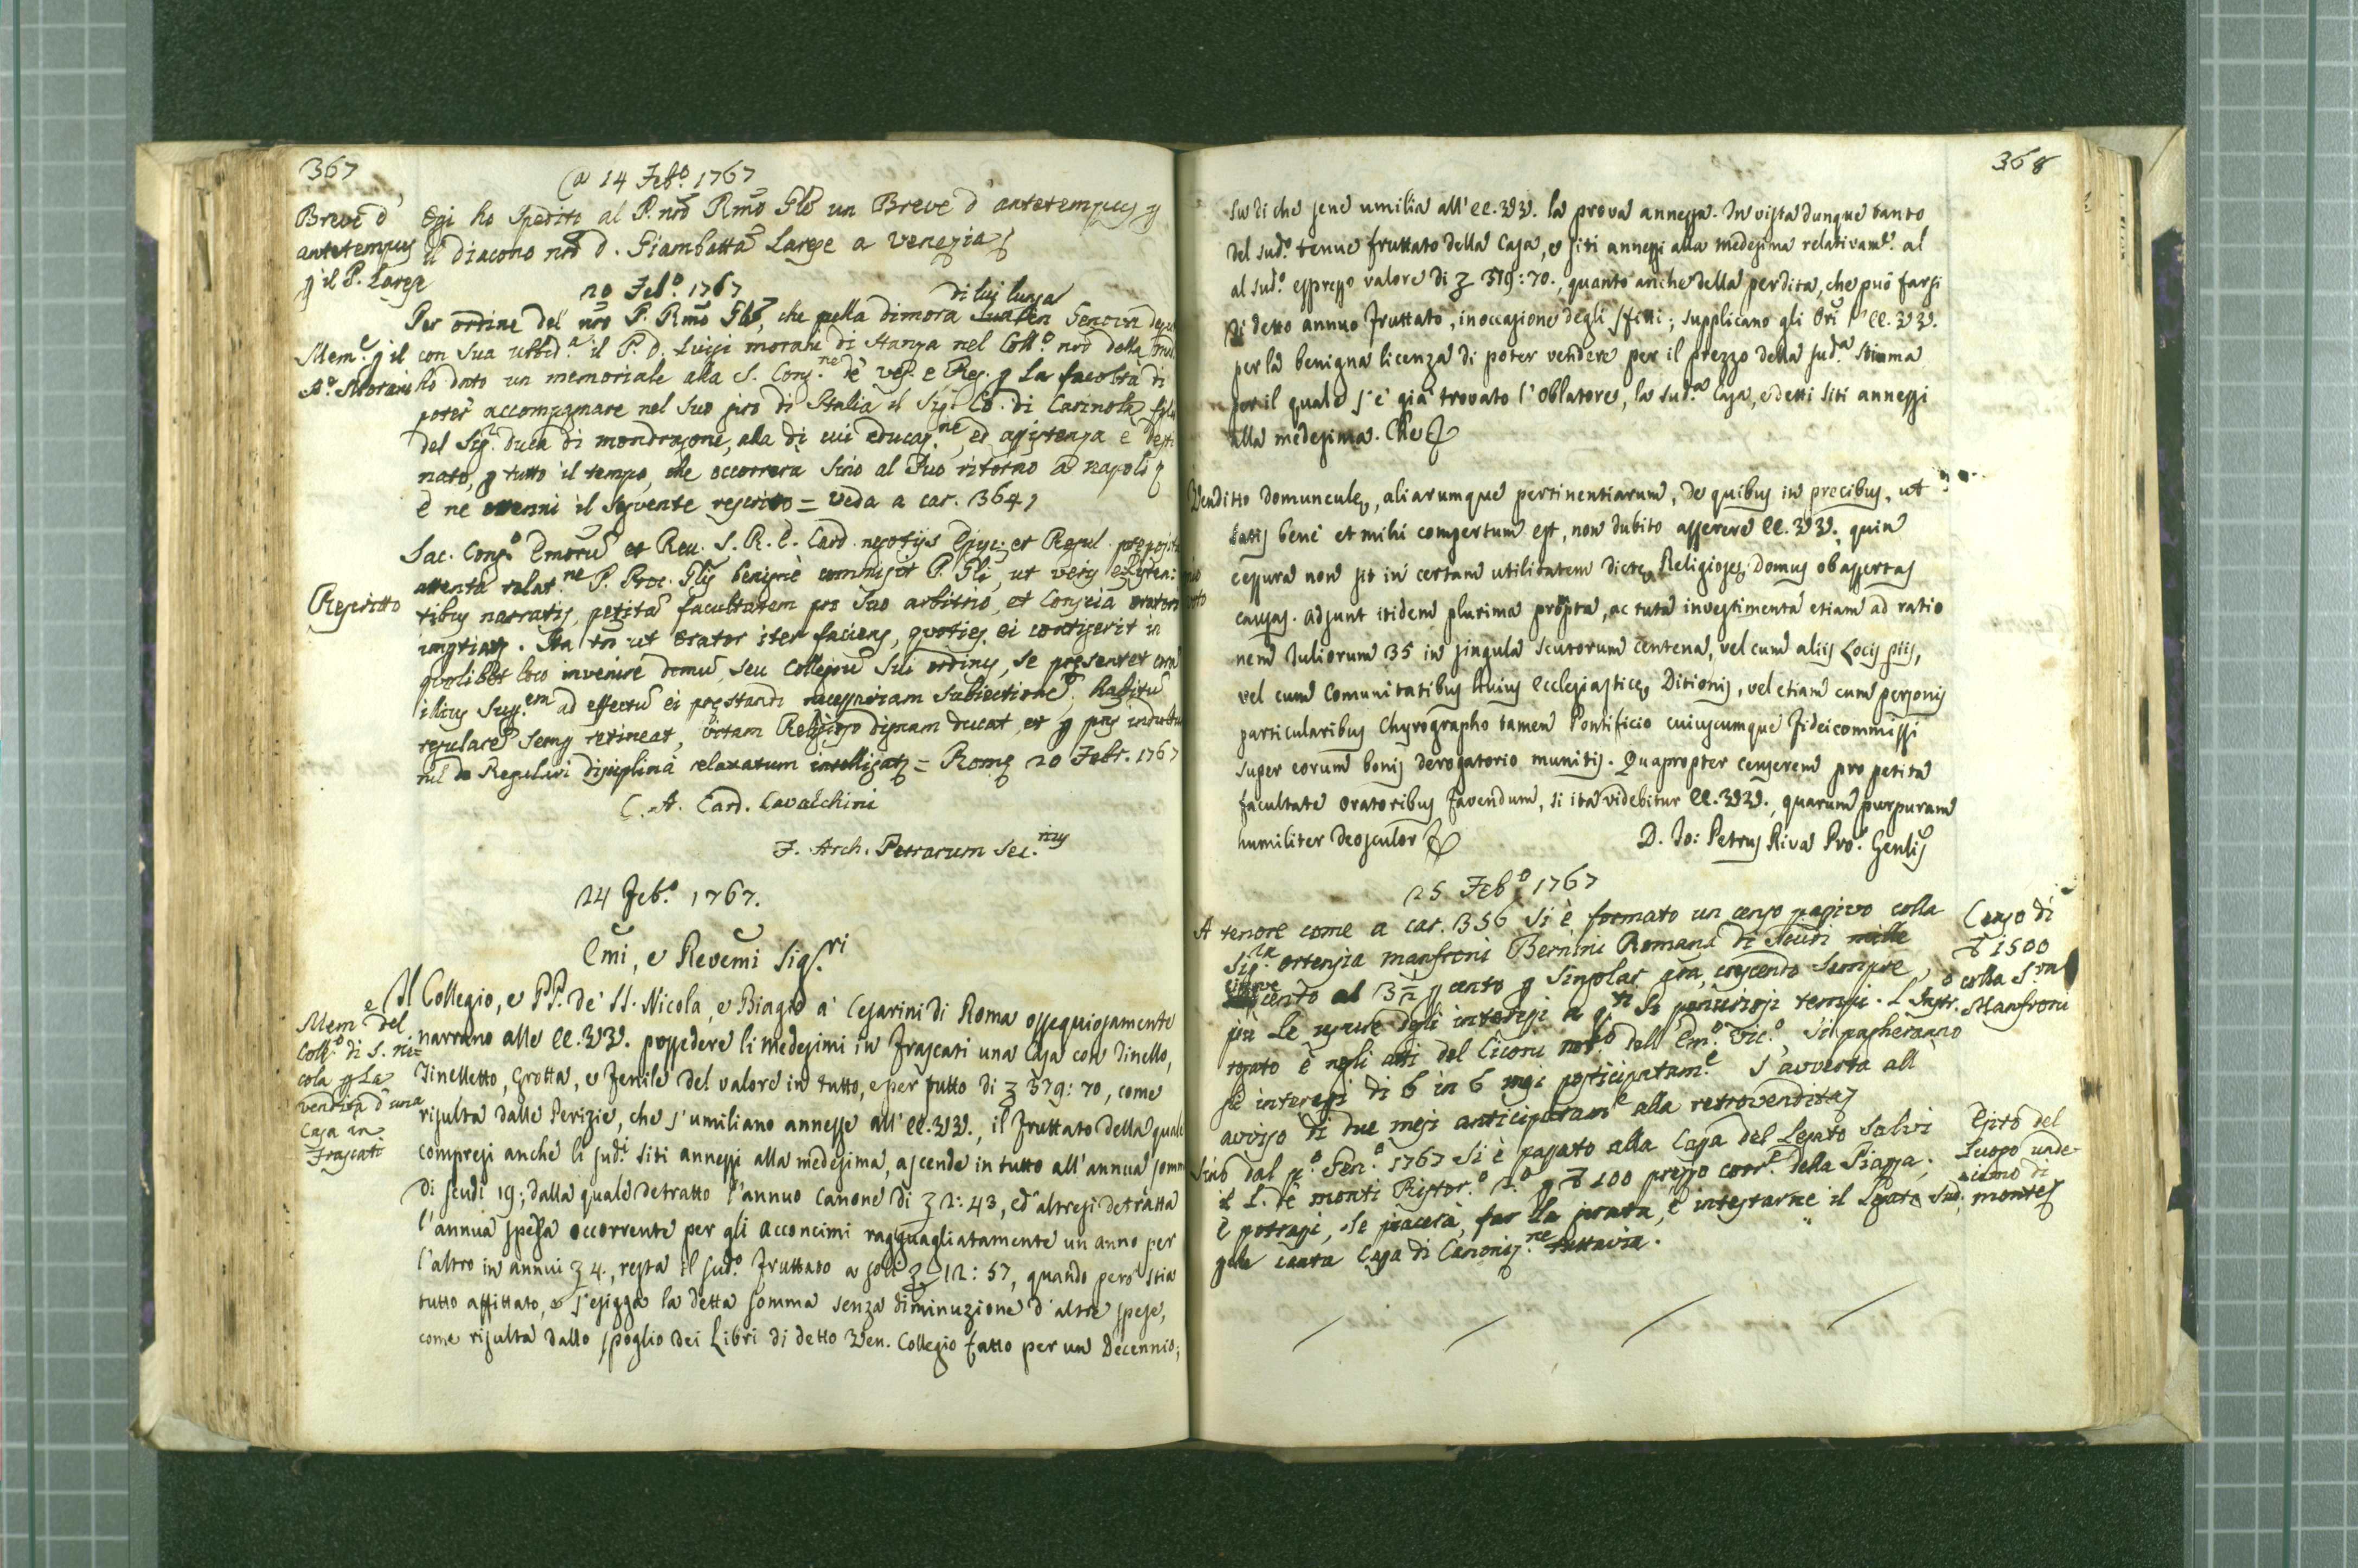 367
a 14 Feb.º 1767
Breve d'
antetempus
p il P. Larese
Ogi ho spedito al P. nrõ Rmõ Gle un Breve d' antetempus p
il Diacono nrõ d. Giambatta Larese a Venezia
20 Feb.º 1767
di lui lunga
Per ordine del nrõ P. Rmõ Gle, che nella dimora in Genova
Mem.e p il
P. Morari
con sua ubbid.a il P. D. Luigi Morari di stanza nel Coll.o nrõ della
ho dato un memoriale alla S. Cong.ne de' Vesc. e Reg. p la facoltà di
poter accompagnare nel suo giro di Italia il Sig. Co. di Carinola
del Sig.r Duca di Mondragone, alla di cui educaz.ne, ed assistenza è desti-
nato, p tutto il tempo, che occorrerà sino al suo ritorno a Napoli
e ne ottenni il seguente rescritto = veda a car. 364
Rescritto
Sac. Cong.o Emorũ et Reu. S. R. E. Card. negotijs Episc. et Regul. preposita
attenta relat.ne P. Proc. Glis benignè commisit P. Gli, ut veris existen:
tibus narratis, petitã facultatem pro suo arbitrio, et conscia oratori
impertiat. Ita tñ ut Orator iter faciens, quoties ei contigerit in
quolibet loco invenire domũ, seu Collegiũ sui ordinis, se presentet corã
illius Sup.em ad effectũ ei prestandi necessariam subiectionẽ, habitũ
regularẽ semp retineat, vitam Religioso dignam ducat, et p pns indultũ
nil de Regulari disciplina relaxatum intelligat = Rome 20 Febr. 1767
C. A. Card. Cavalchini
F. Arch. Petrarum Sec.rius
24 Feb.º 1767.
Emi, e Revemi Sig.ri
Mem.e del
Coll.o di S. Ni=
cola p la
vendita d'una
Casa in
Frascati
Il Collegio, e PP. de' SS. Nicola, e Biagio a' Cesarini di Roma ossequiosamente
narrano alle EE. VV. possedere li medesimi in Frascati una Casa con Tinello,
Tinelletto, Grotta, e Fenile del valore in tutto, e per tutto di 379: 70, come
risulta dalle Perizie, che s'umiliano annesse all' EE. VV., il Fruttato della quale
compresi anche li sud.i siti annessi alla medesima, ascende in tutto all'annua somma
di scudi 19; dalla quale detratto l'annuo Canone di 2: 43, ed altresì detratta
l'annua spesa occorrente per gli acconcimi ragguagliatamente un anno per
l'altro in annui 4., resta il sud.o Fruttato a soli 12: 57, quando però stia
tutto affittato, e s'esigga la detta somma senza diminuzione d'altre spese,
come risulta dallo spoglio dei Libri di detto Ven. Collegio fatto per un Decennio;
368
su di che sene umilia all' EE. VV. la prova annessa. In vista dunque tanto
del sud.o tenue fruttato della Casa, e siti annessi alla medesima relativam.e al
al sud.o espresso valore di 379: 70., quanto anche della perdita, che può farsi
di detto annuo Fruttato, in occasione degli sfitti; supplicano gli Ori l'EE. VV.
per la benigna licenza di poter vendere per il prezzo della sud.a stima
per il quale s'è già trovato l'Oblatore, la sud.a Casa, e detti siti annessi
alla medesima. Che
Venditio domuncule, aliarumque pertinentiarum, de quibus in precibus, ut
satis benè et mihi compertum est, non dubito asserere EE. VV. quin
cessura non sit in certam utilitatem dicte Religiose Domus ob assertas
causas. Adsunt itidem plurima prompta, ac tuta investimenta etiam ad ratio
nem Juliorum 35 in singula scutorum centena, vel cum aliis Locis piis,
vel cum Comunitatibus huius Ecclesiastice Ditionis, vel etiam cum personis
particularibus Chyrographo tamen Pontificio cuiuscumque Fideicommissi
super eorum bonis derogatorio munitis. Quapropter censerem pro petita
facultate Oratoribus favendum, si ita videbitur EE. VV., quarum purpuram
humiliter deosculor
D. Jo: Petrus Riva Pro.r Genlis
25 Feb.º 1767
Censo di
1500
colla S.ra
Manfroni
A tenore come a car. 356 si è formato un censo passivo colla
Sig.ra Ortensia Manfroni Bernini Romana di scudi mille
cento al 3 1/2 p cento p singolar crescendo sempre
più le usure degli interessi a q.ti si penuriosi tempi. L'Instr.o
rogato è negli atti del Ciconi not.o dell' Em.o Vic.o, si pagheranno
gl' interessi di 6 in 6 mesi posticipatam.e S'avverta all'
avviso di due mesi anticipatam.e alla retrovendita
Esito del
Luogo unde-
cimo di
monte
Sino dal p.o Gen.o 1767 si è pagato alla Casa del Legato Salvi
il L. de' monti Ristor.o 2.o p 100 prezzo corr.e della Piazza;
e potrassi, se piacerà, far la, e intestarne il Legato sud.o
tuttavia.